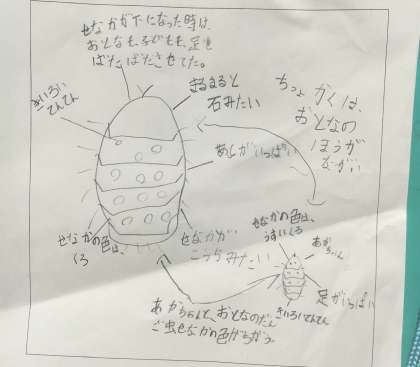 せなかが下になった時は、
おとなも、子どもも、足を
ばたばたさせてた。
きいろい
てんてん
まるまると
石みたい
ちょっかくは、
おとなの
ほうが
ながい
あしがいっぱい
せなかの色は、
くろ
せなかが
こうらみたい
せなかの色は、
うすいくろ
あかちゃん
足がいっぱい
きいろいてんてん
あかちゃんと、おとなのだん
ご虫せなかの色がちがう。